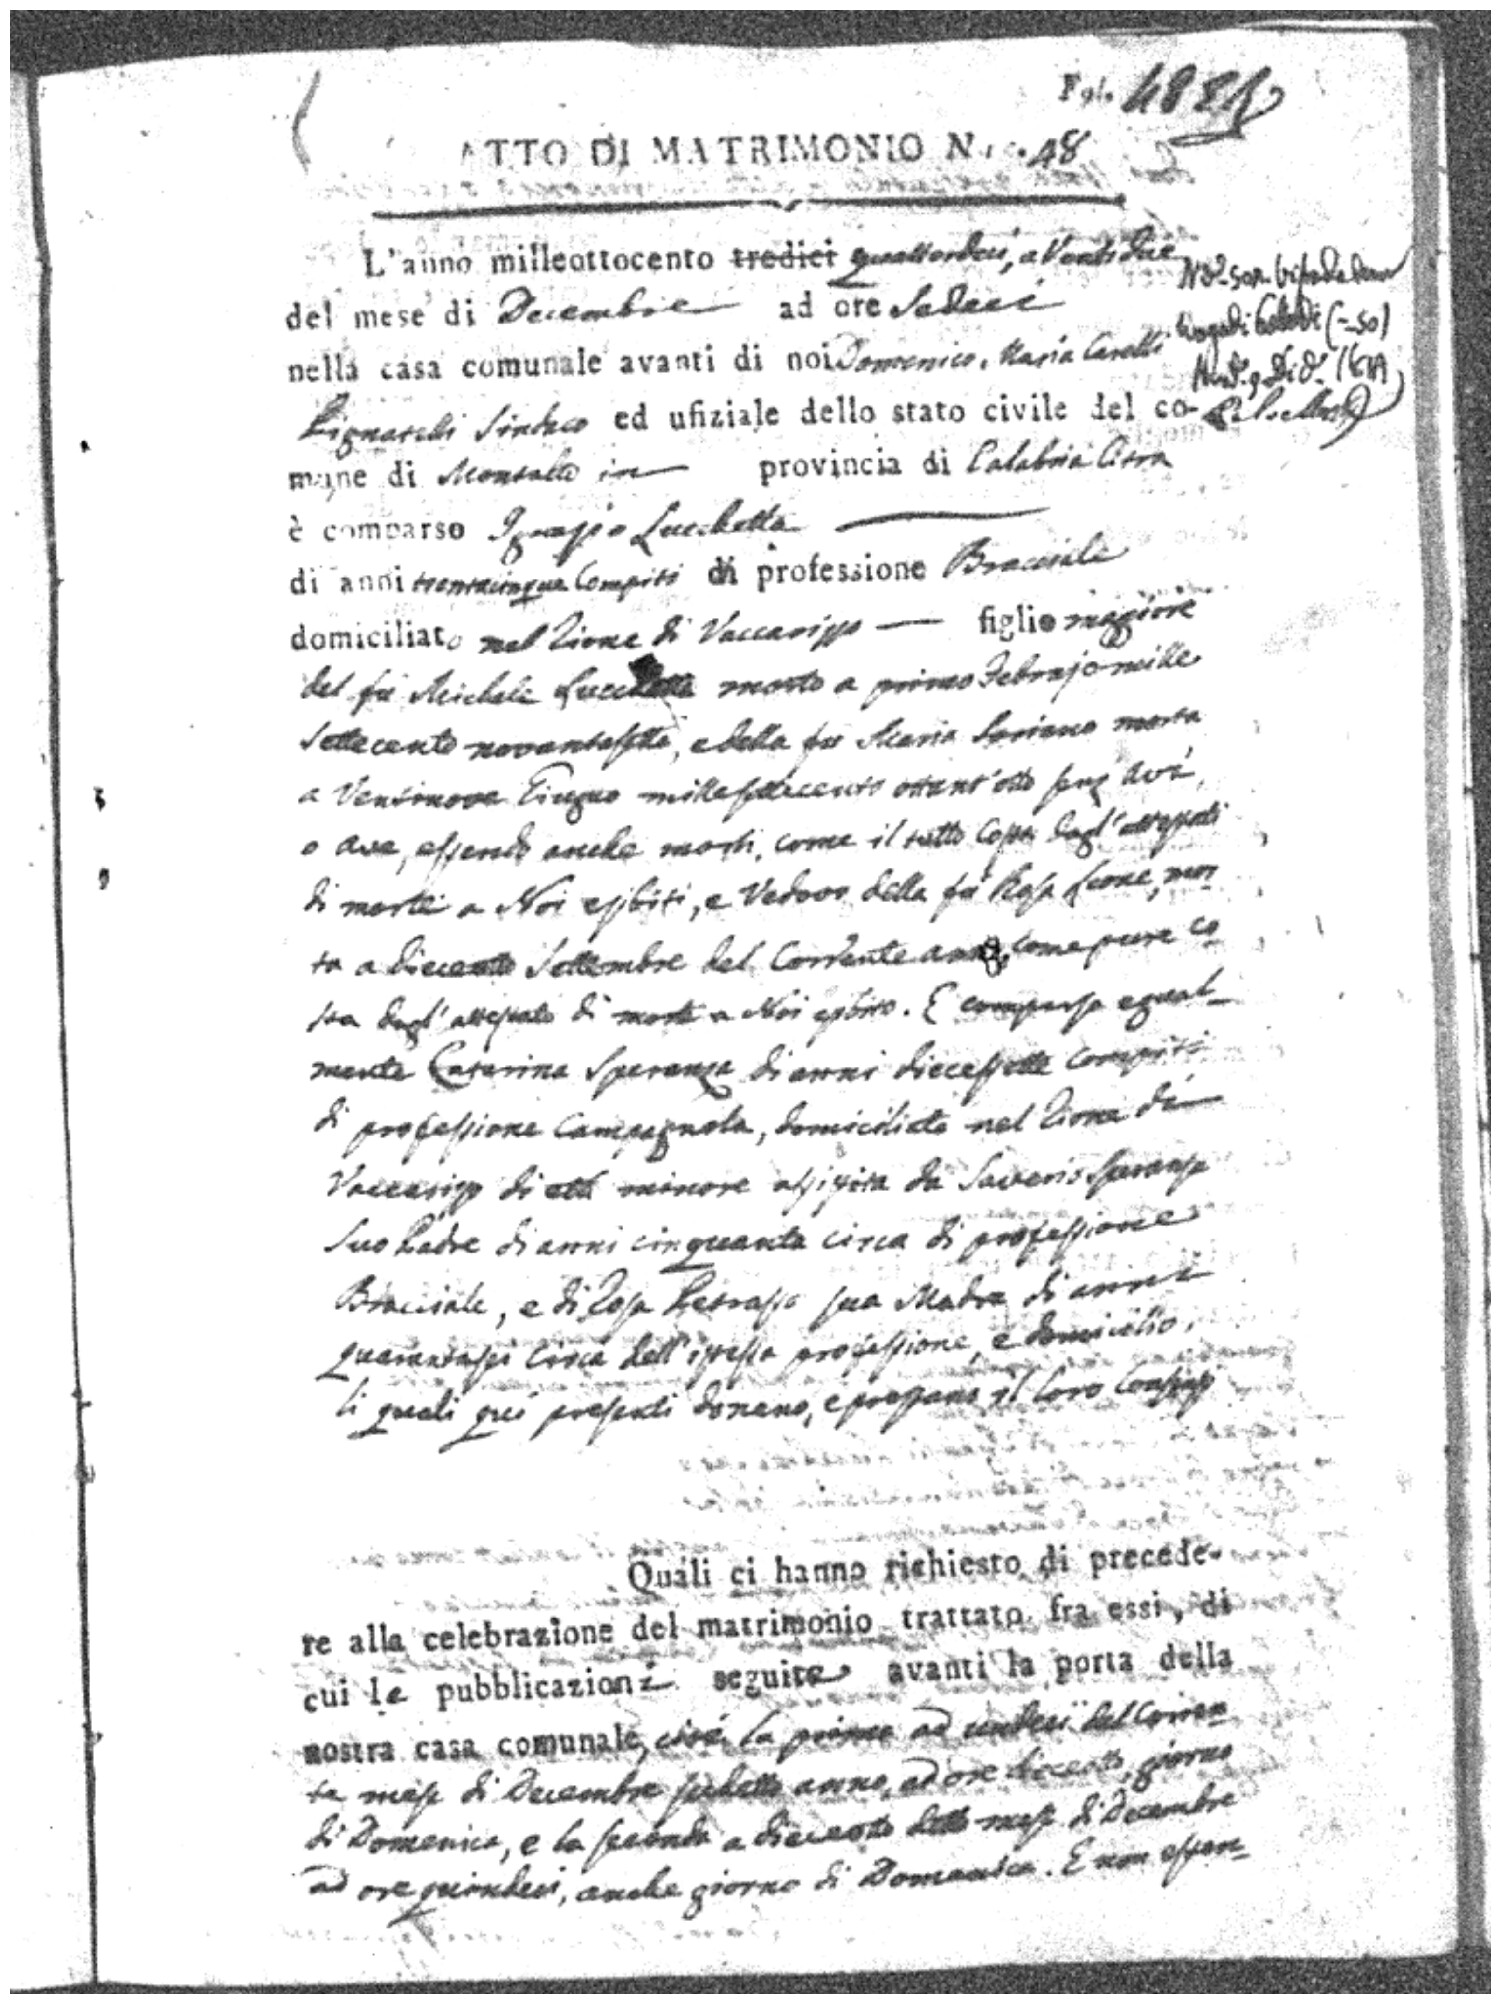 Fgl. 48
ATTO DI MATRIMONIO N. 48
L'anno milleottocento tredici quattordeci, a Ventidue
del mese di Decembre ad ore Sedeci
nella casa comunale avanti di noi Domenico Maria Caselli
Pignatelli Sindaco ed ufiziale dello stato civile del co-
mune di Montalto in provincia di Calabria Citra
è comparso Ignazio Lucchetta
di anni trentacinque Compiti di professione Bracciale
domiciliato nel Rione di Vaccarizzo figlio maggiore
del fù Michele Lucchetta morto a primo Febrajo mille
settecento novantasette, e della fù Maria Soriano morta
a Ventinove Giugno millesettecento ottant'otto senz'avo,
o ava, essendo anche morti, come il tutto costa dagl'attestati
di morte a Noi esibiti, e Vedovo della fù Rosa Leone, mor
ta a dieceotto Settembre del Corrente anno, come pure co
sta dagl'attestato di morte a Noi esibito. È comparsa egual
mente Caterina Speranza di anni diecessette compiti
di professione Campagnola, domiciliata nel Rione di
Vaccarizzo di età minore assistita da Saverio Speranza
suo Padre di anni cinquanta circa di professione
Bracciale, e di Rosa Petrasso sua Madre di anni
quarantasei circa dell'istessa professione, e domicilio,
li quali quì presenti donano, e prestano il loro consenso
Quali ci hanno richiesto di precede-
re alla celebrazione del matrimonio trattato fra essi, di
cui le pubblicazioni seguite avanti la porta della
nostra casa comunale, cioè la prima ad undeci del Corren
te mese di Decembre sudetto anno, ad ore dieceotto, giorno
di Domenica, e la seconda a dieceotto detto mese di Decembre
ad ore quindeci, anche giorno di Domenica. E non essen